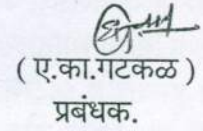 ( ए.का.गटकळ )
प्रबंधक.